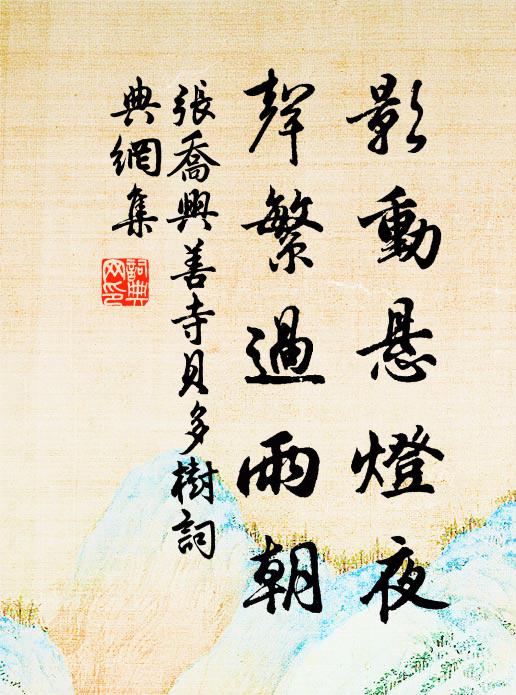 影動懸燈夜
聲繁過雨朝
張喬興善寺貝多樹詞
典網集
詞典
网印